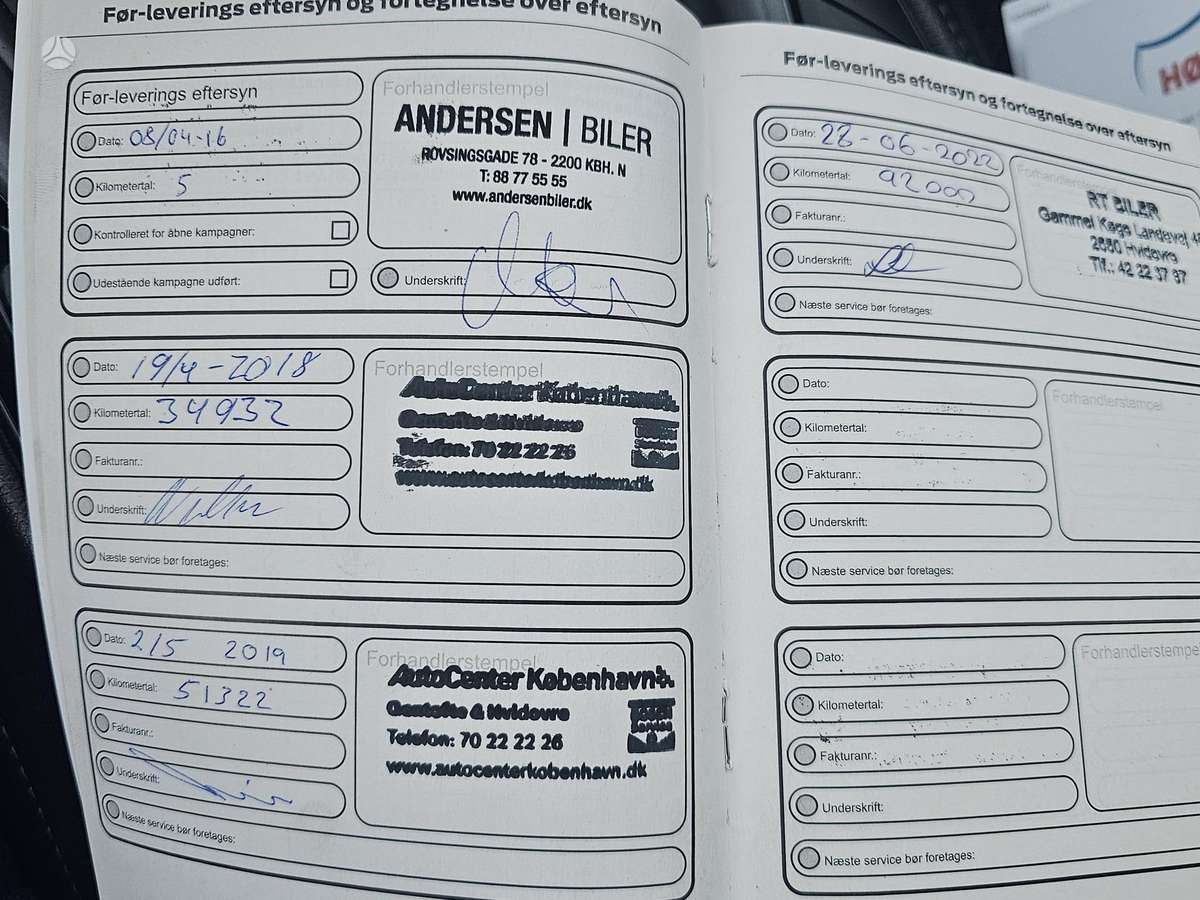 Før-leverings eftersyn og fortegnelse over eftersyn
Før-leverings eftersyn
Dato: 08/04-16
Kilometertal: 5
Kontrolleret for åbne kampagner:
Udestående kampagne udført:
Forhandlerstempel
ANDERSEN | BILER
ROVSINGSGADE 78 - 2200 KBH. N
T: 88 77 55 55
www.andersenbiler.dk
Underskrift:
Dato: 19/4-2018
Kilometertal: 34932
Fakturanr.:
Underskrift:
Næste service bør foretages:
Forhandlerstempel
AutoCenter København
Gentofte & Hvidovre
Telefon: 70 22 22 26
www.autocenterkobenhavn.dk
Dato: 2/5 2019
Kilometertal: 51322
Fakturanr.:
Underskrift:
Næste service bør foretages:
Forhandlerstempel
AutoCenter København
Gentofte & Hvidovre
Telefon: 70 22 22 26
www.autocenterkobenhavn.dk
Før-leverings eftersyn og fortegnelse over eftersyn
Dato: 28-06-2022
Kilometertal: 92000
Fakturanr.:
Underskrift:
Næste service bør foretages:
RT BILER
Gammel Køge Landevej
2650 Hvidovre
Tlf.: 42 22 37 37
Dato:
Kilometertal:
Fakturanr.:
Underskrift:
Næste service bør foretages:
Forhandlerstempel
Dato:
Kilometertal:
Fakturanr.:
Underskrift:
Næste service bør foretages:
Forhandlerstempe
HØ